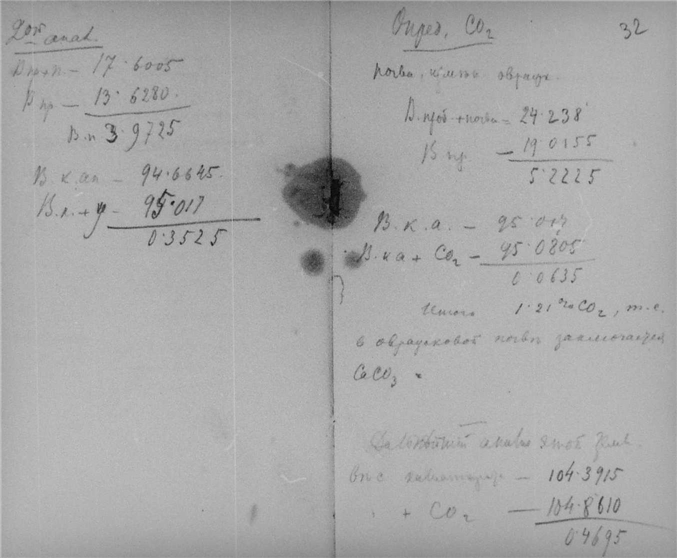 анал.
В пр+п — 17.6005
В пр — 13.6280
В.п 3.9725
В.к.ап — 94.6645.
95.017
0.3525
32
Опред. CO₂
почва, овраж.
В.проб + почва = 24.238
В пр — 19.0155
5.2225
В.к.а. — 95.017
В.к а + CO₂ — 95.0805
0.0635
Итого 1.21% CO₂, т.е.
в овражковой почве заключается
CaCO₃
Дальнейший анализ этой земл.
вѣс — 104.3915
+ CO₂ — 104.8610
0.4695